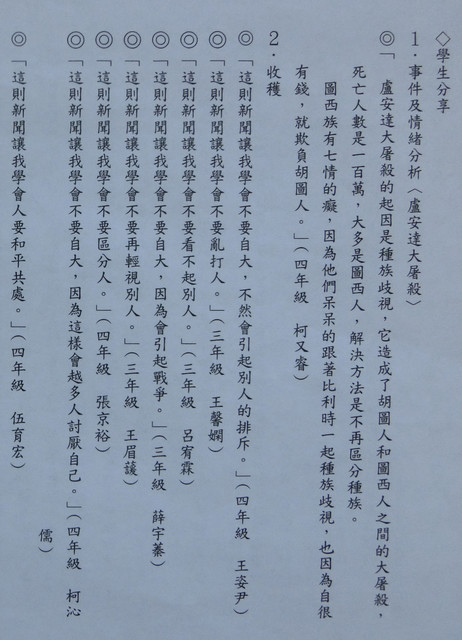 ◇學生分享
1．事件及情緒分析〈盧安達大屠殺〉
◎「盧安達大屠殺的起因是種族歧視，它造成了胡圖人和圖西人之間的大屠殺，
死亡人數是一百萬，大多是圖西人，解決方法是不再區分種族。
圖西族有七情的癡，因為他們呆呆的跟著比利時一起種族歧視，也因為自很
有錢，就欺負胡圖人。」（四年級　柯又睿）
2．收穫
◎「這則新聞讓我學會不要自大，不然會引起別人的排斥。」（四年級　王姿尹）
◎「這則新聞讓我學會不要亂打人。」（三年級　王馨嫻）
◎「這則新聞讓我學會不要看不起別人。」（三年級　呂宥霖）
◎「這則新聞讓我學會不要自大，因為會引起戰爭。」（三年級　薛宇蓁）
◎「這則新聞讓我學會不要再輕視別人。」（三年級　王眉）
◎「這則新聞讓我學會不要區分人。」（四年級　張京裕）
◎「這則新聞讓我學會不要自大，因為這樣會越多人討厭自己。」（四年級　柯沁
儒）
◎「這則新聞讓我學會人要和平共處。」（四年級　伍育宏）